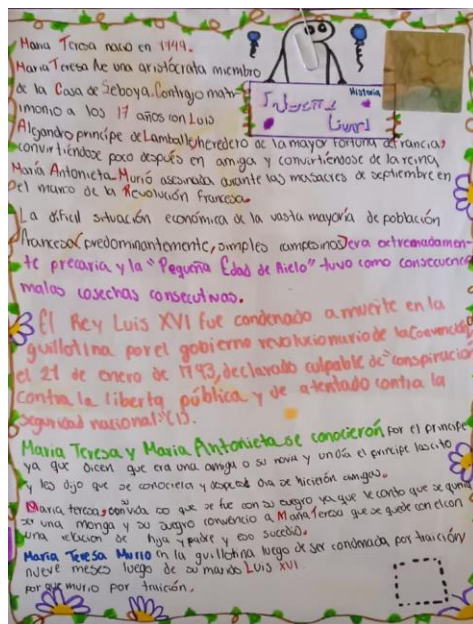 Maria Teresa nacio en 1749.
Maria Teresa fue una aristócrata miembro
de la Casa de Seboya. Contrajo matr-
imonio a los 17 años con Luis
Alejandro príncipe de Lamballe, heredero de la mayor fortuna de francia,
convirtiéndose poco después en amiga y convirtiéndose de la reina
María Antonieta. Murió asesinada durante las masacres de septiembre en
el marco de la Revolución francesa.
Historia
La dificil situación económica de la vasta mayoría de población
francesa (predominantemente, simples campesinos) era extremadamen-
te precaria y la "Pequeña Edad de Hielo" tuvo como consecuencia
malas cosechas consecutivas.
El Rey Luis XVI fue condenado a muerte en la
guillotina por el gobierno revolucionario de la Convención
el 21 de enero de 1793, declarado culpable de "conspiración
contra la liberta pública y de atentado contra la
seguridad nacional"(1).
Maria Teresa y Maria Antonieta se conocieron por el principe
ya que dicen que era una amiga o su novia y un día el principe las cito
y les dijo que se conociera y despues dia se hicierón amigas.
Maria teresa, con vida so que se fue con su suegro ya que le conto que se queria
ser una monga y su suegro convencio a Maria Teresa que se quede con el con
una relacion de hija y padre y eso sucedio.
Maria Teresa Murio en la guillotina luego de ser condenada por traición
nueve meses luego de su marido Luis XVI
por que murio por traición.